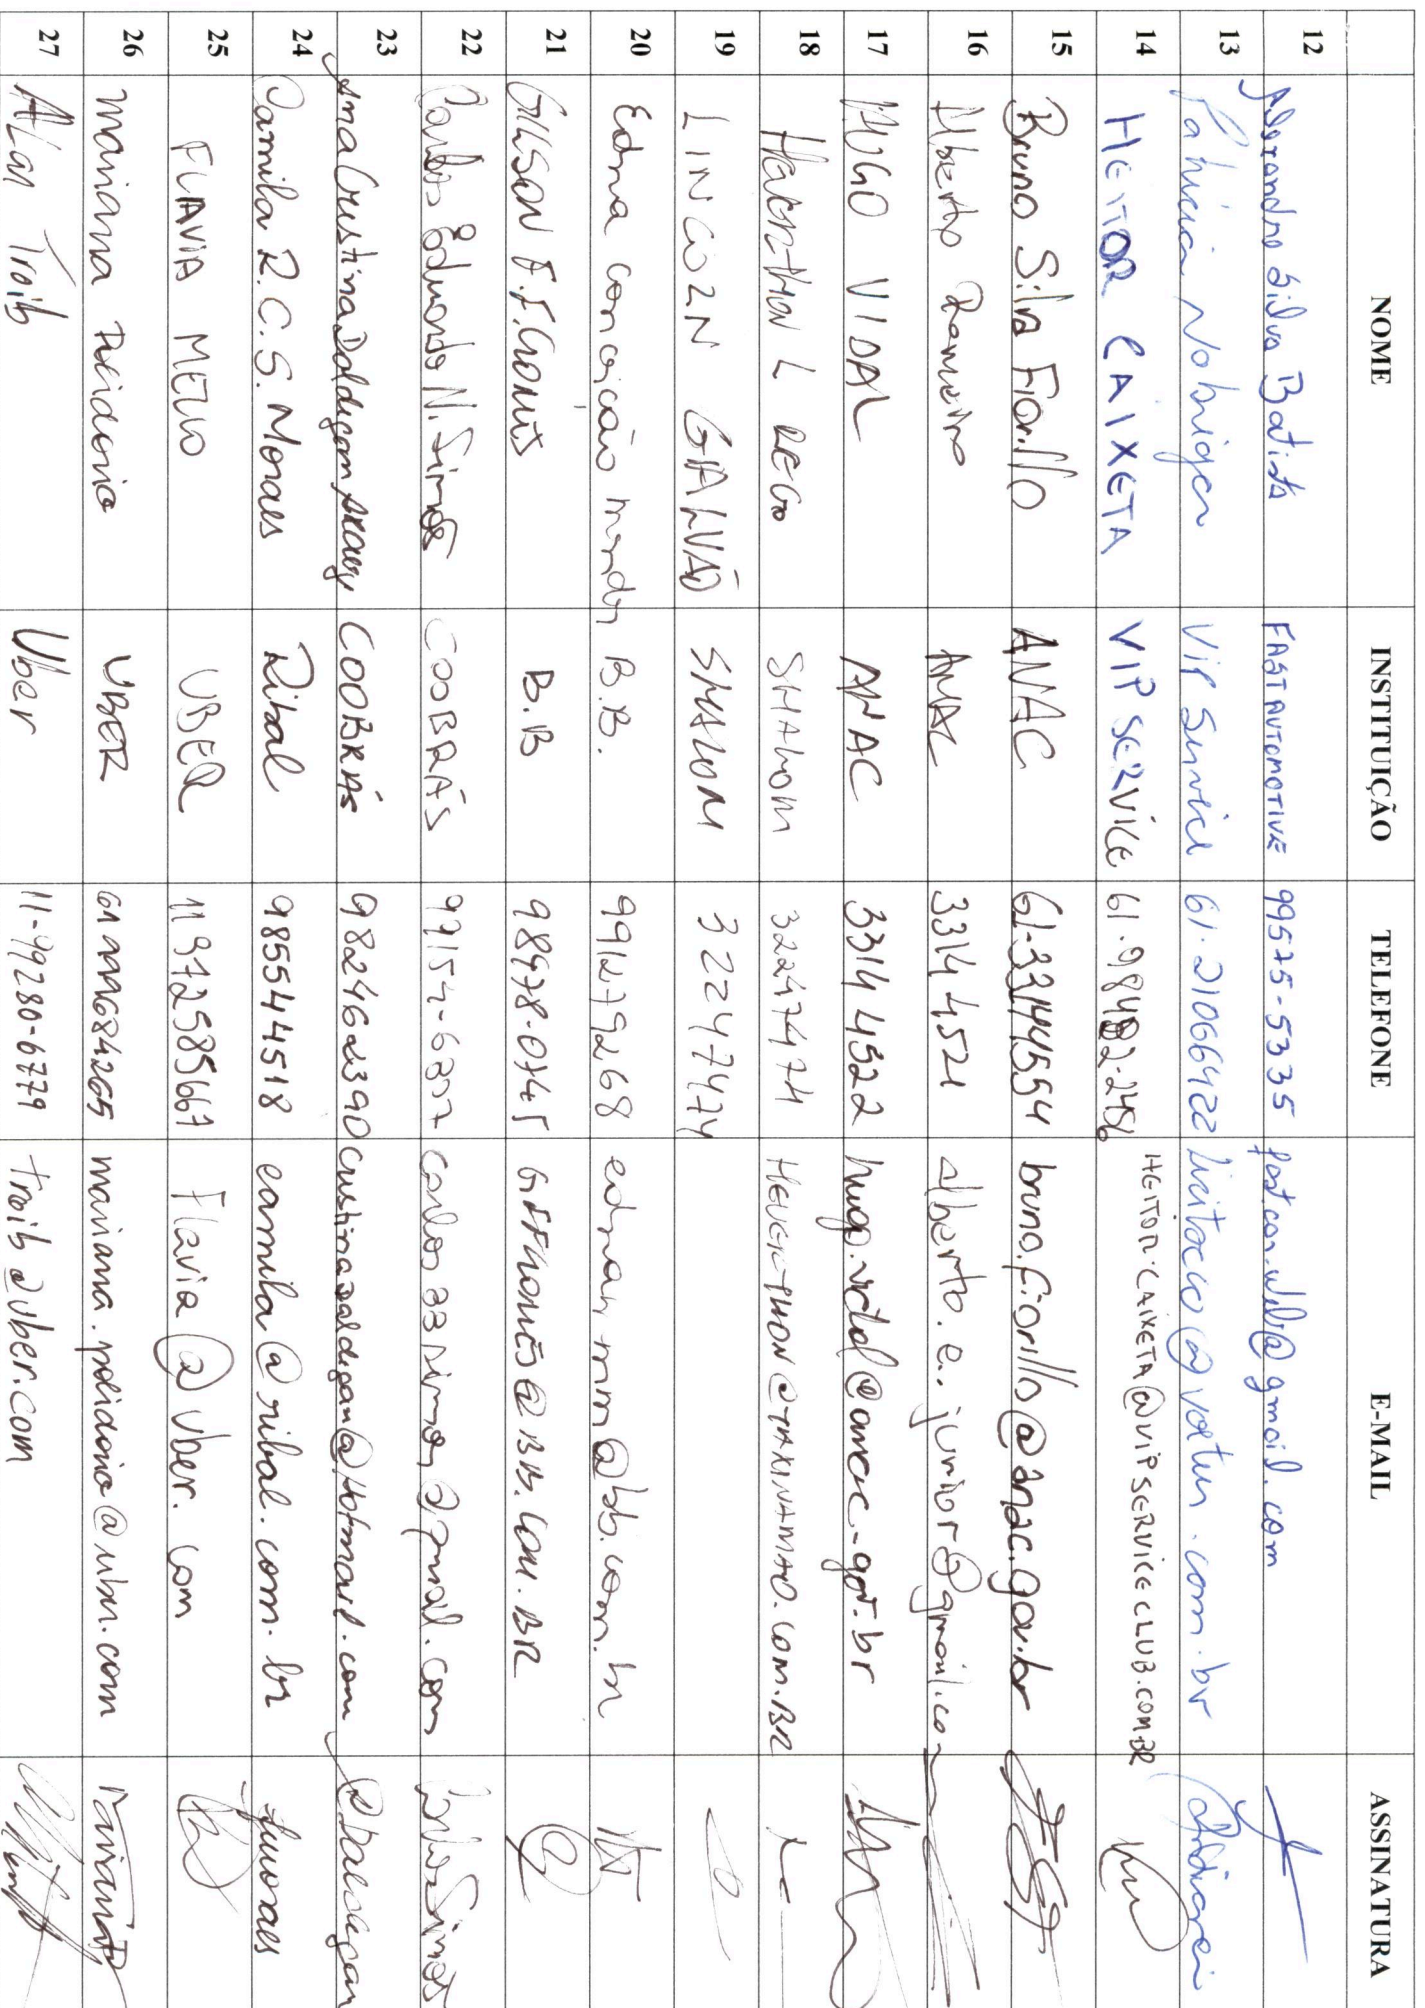 NOME INSTITUIÇÃO TELEFONE E-MAIL ASSINATURA
12 Alexandre Silva Batista FAST AUTOMOTIVE 99575-5335 fast.car.web@gmail.com
13 Patricia Nobrega Vip Service 61.21066422 licitacao@voetur.com.br
14 HEITOR CAIXETA VIP SERVICE 61.98482-2456 HEITOR.CAIXETA@VIPSERVICECLUB.COM.BR
15 Bruno Silva Fiorillo ANAC 61-33144554 bruno.fiorillo@anac.gov.br
16 Alberto ANAC 3314 4521 alberto.e.junior@gmail.com
17 HUGO VIDAL ANAC 3314 4522 hugo.vidal@anac.gov.br
18 HEVERTHON L REGO SHALOM 32247474 HEVERTHON@TAXINAMAO.COM.BR
19 LINCOLN GALVÃO SHALOM 32247474
20 Edna conceição mendes B.B. 991279268 ednamm@bb.com.br
21 GILSON F.F.GOMES B.B 98478-0745 GFFGOMES@BB.COM.BR
22 Carlos Eduardo N. Simos COOBRÁS carlos33simos@gmail.com Carlos Simos
23 Ana Cristina Daldegan COOBRÁS 982462390 cristinadaldegan@hotmail.com
24 Camila R.C.S. Moraes Ribal 985544518 camila@ribal.com.br
25 FLAVIA MELLO UBER 11 972585667 Flavia@uber.com
26 mariana Polidorio UBER mariana.polidorio@uber.com
27 Alan Traib Uber 11-99280-6779 traib@uber.com